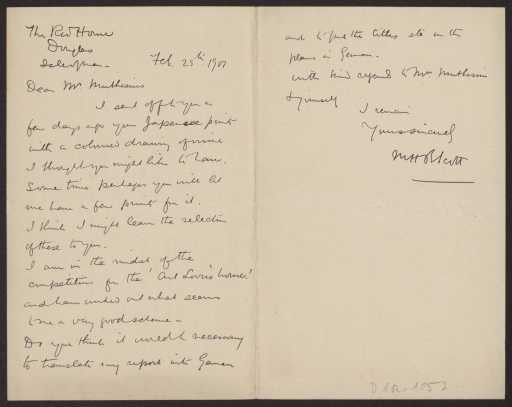 The Red House
Douglas
Isle of Man.
Feb 25th 1901
Dear Mr Muthesius
I sent off to you a
few days ago your Japanese print
with a coloured drawing of mine
I thought you might like to have.
Some time perhaps you will let
me have a few prints for it.
I think I might leave the selection
of these to you.
I am in the midst of the
competition for the 'Art Lovers house'
and have worked out what seems
to me a very good scheme -
Do you think it would be necessary
to translate my report into German
and to put the titles etc on the
plans in German.
With kind regards to Mrs Muthesius
& yourself
I remain
Yours sincerely
M H B Scott